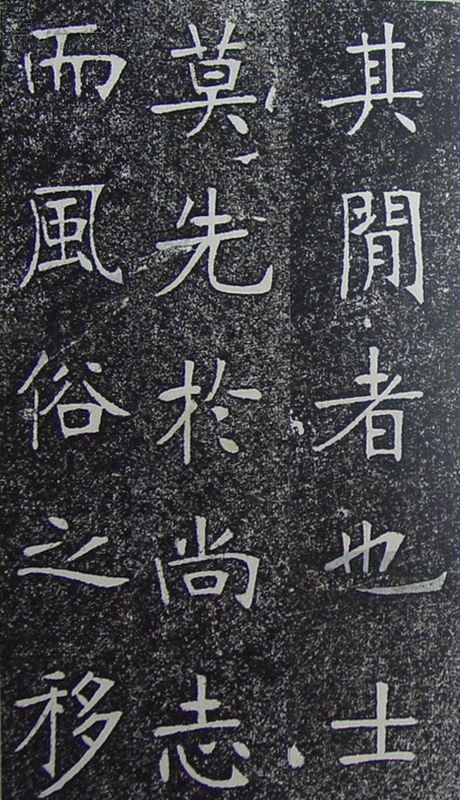 其閒者也士
莫先於尚志
而風俗之移